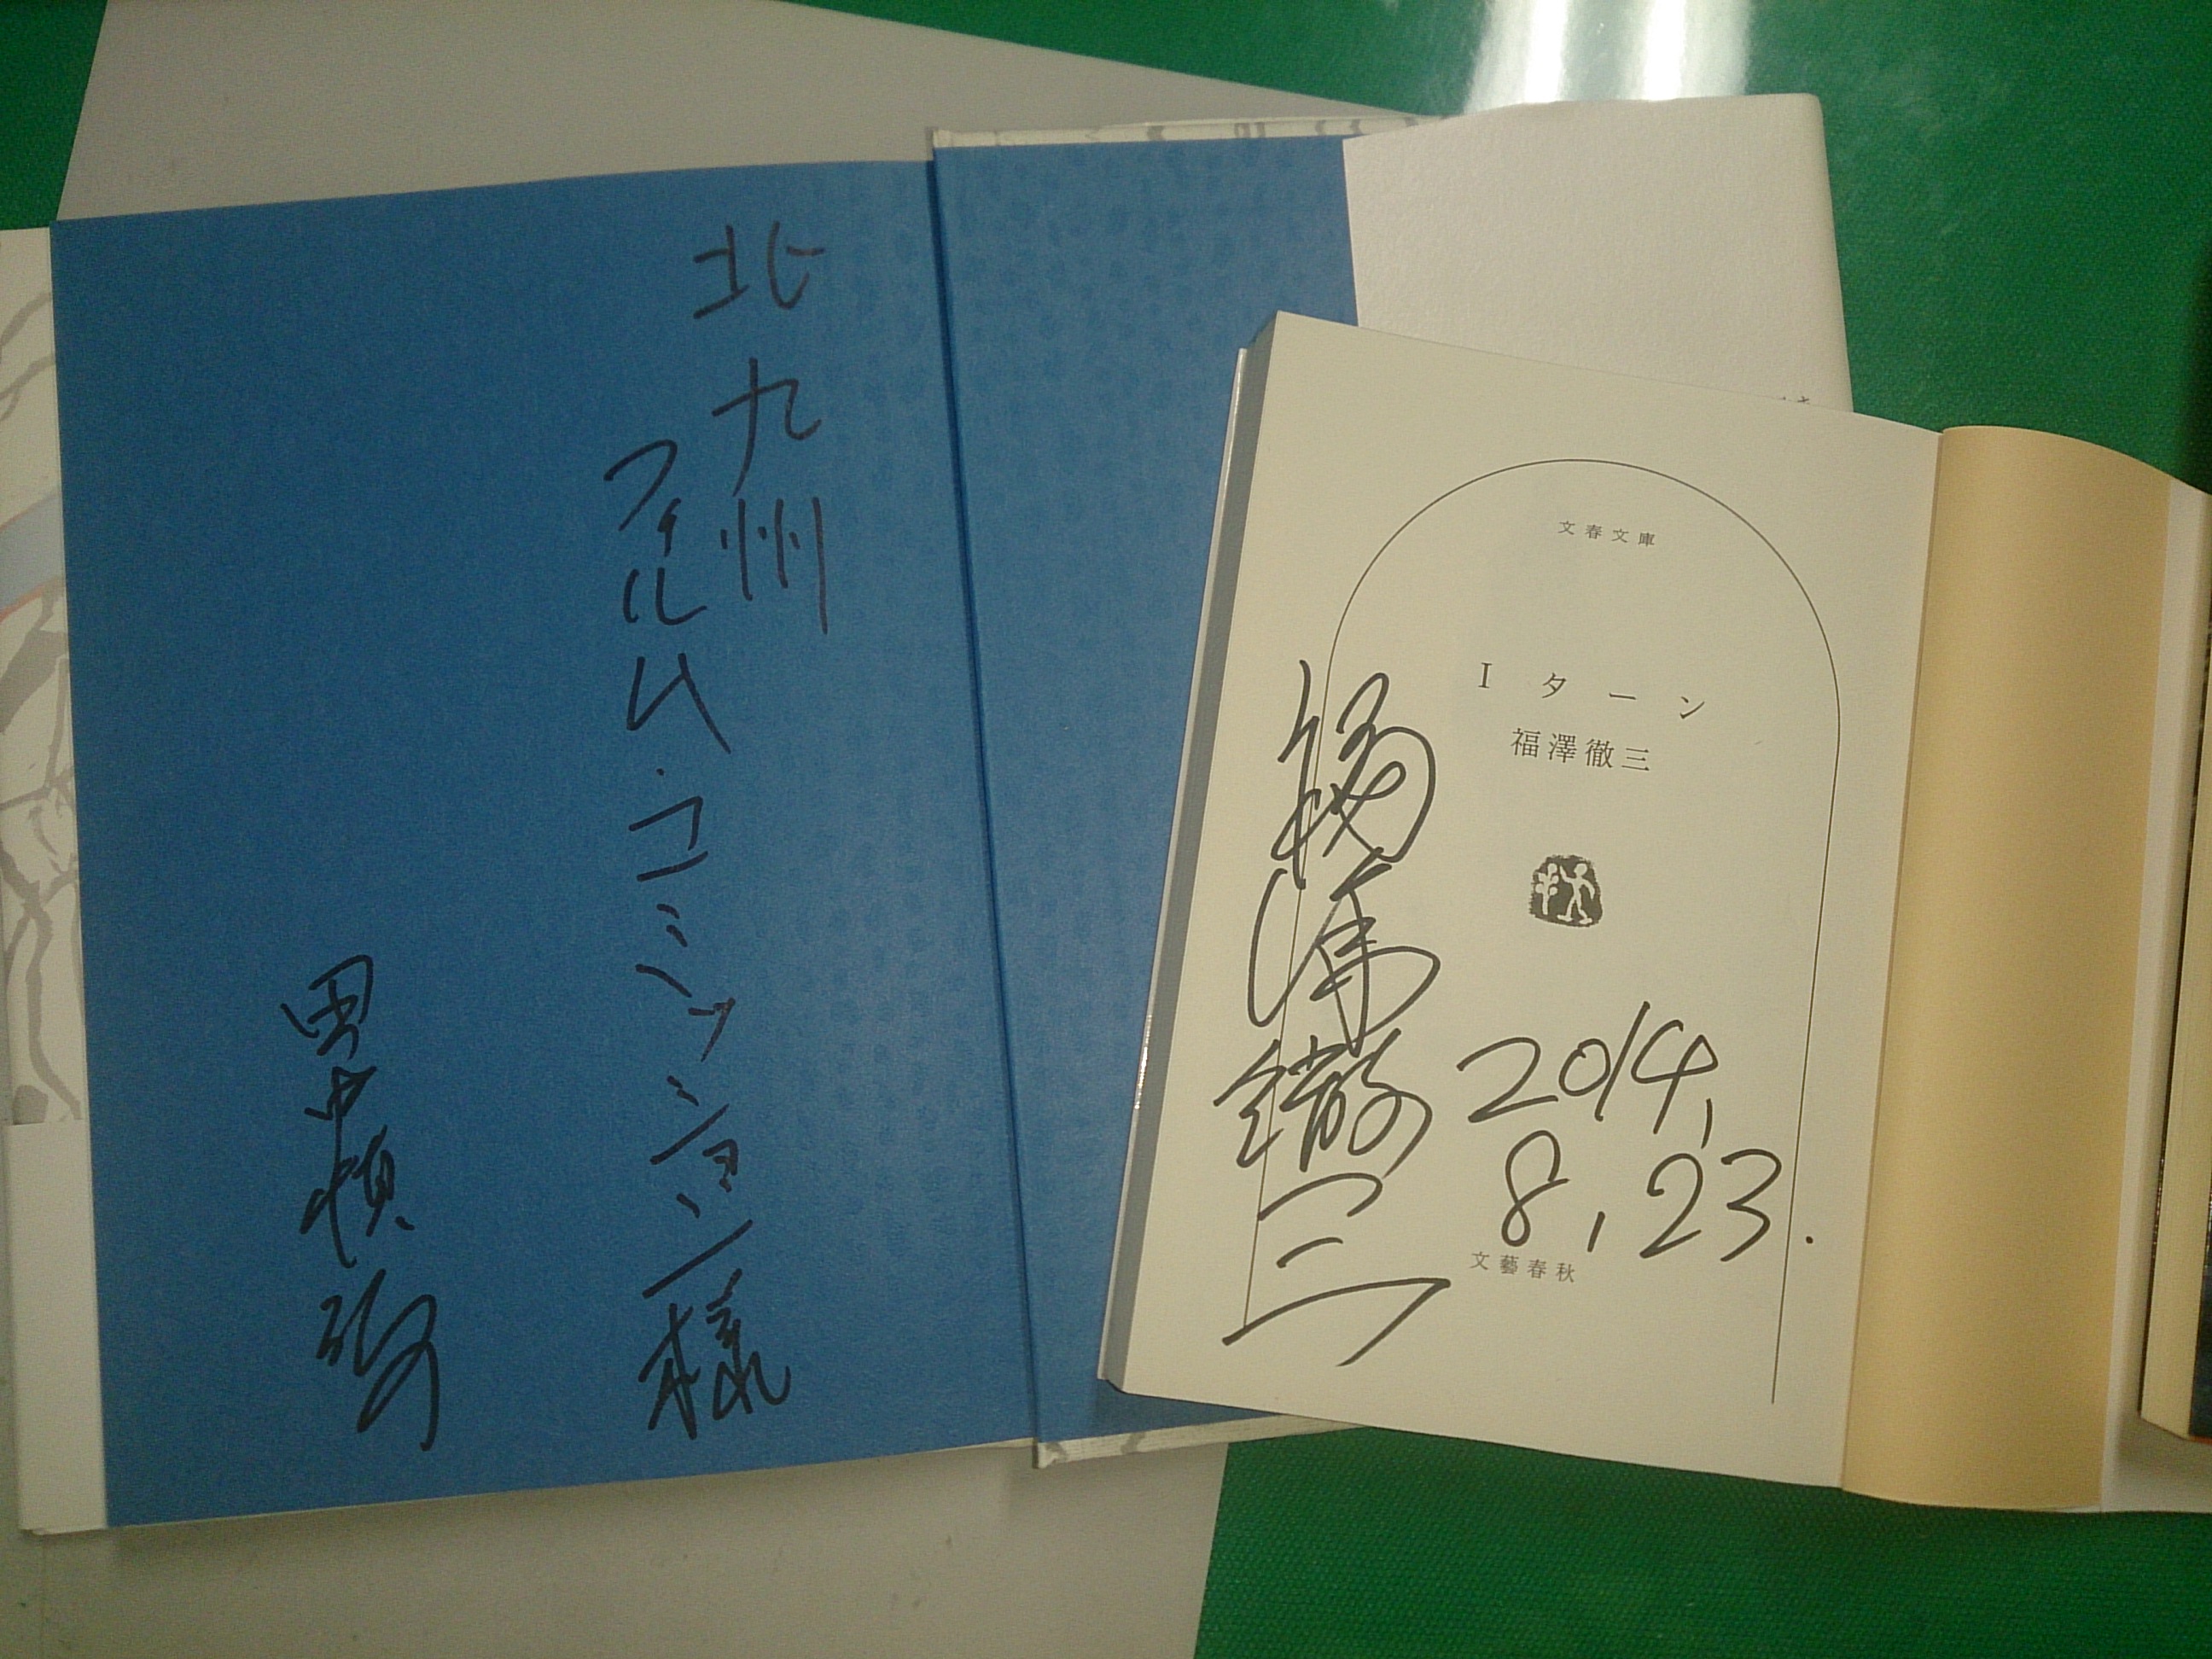 北九州
フィルム・コミッション様
田中慎弥
文春文庫
Iターン
福澤徹三
福澤徹三
2014,
8,23.
文藝春秋